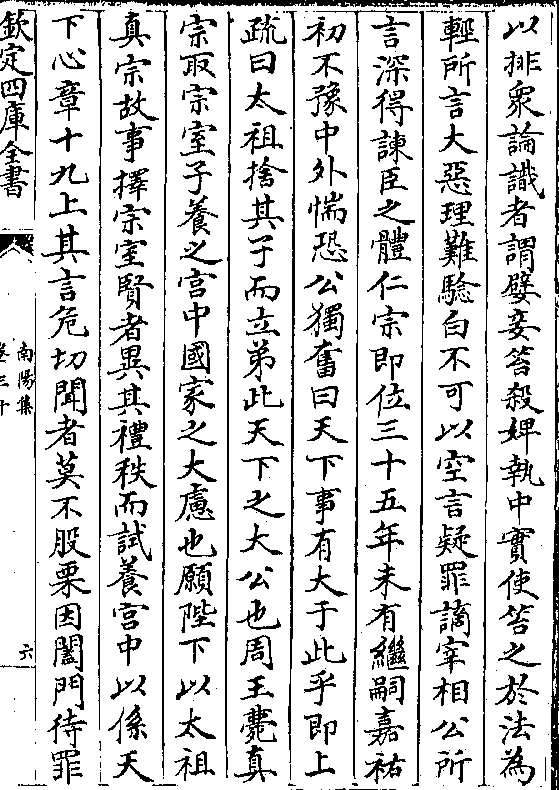 以排衆論識者謂嬖妾笞殺婢執中實使笞之於法為
輕所言大惡理難驗白不可以空言疑罪謫宰相公所
言深得諫臣之體仁宗即位三十五年未有繼嗣嘉祐
初不豫中外惴恐公獨奮曰天下事有大于此乎即上
疏曰太祖捨其子而立弟此天下之大公也周王薨真
宗取宗室子養之宫中國家之大慮也願陛下以太祖
真宗故事擇宗室賢者異其禮秩而試養宫中以係天
下心章十九上其言危切聞者莫不股栗因闔門待罪
欽定四庫全書
南陽集
卷三十
六